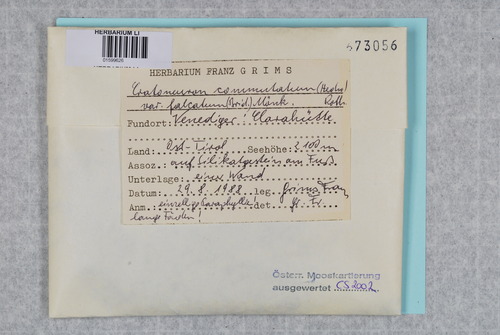 HERBARIUM LI
673056
HERBARIUM FRANZ GRIMS
Cratoneuron commutatum (Hedw.) Roth
var. falcatum (Brid.) Mönk.
Fundort: Venediger: Clarahütte
Land: Ost-Tirol Seehöhe: 2100 m
Assoz.: auf Silikatgestein am Fuß
Unterlage: einer Wand
Datum: 29.8.1988 leg. Grims Franz
Anm. einzellige Paraphyllien! det. Gr. Fr.
lange
Österr. Mooskartierung
ausgewertet CS 2002